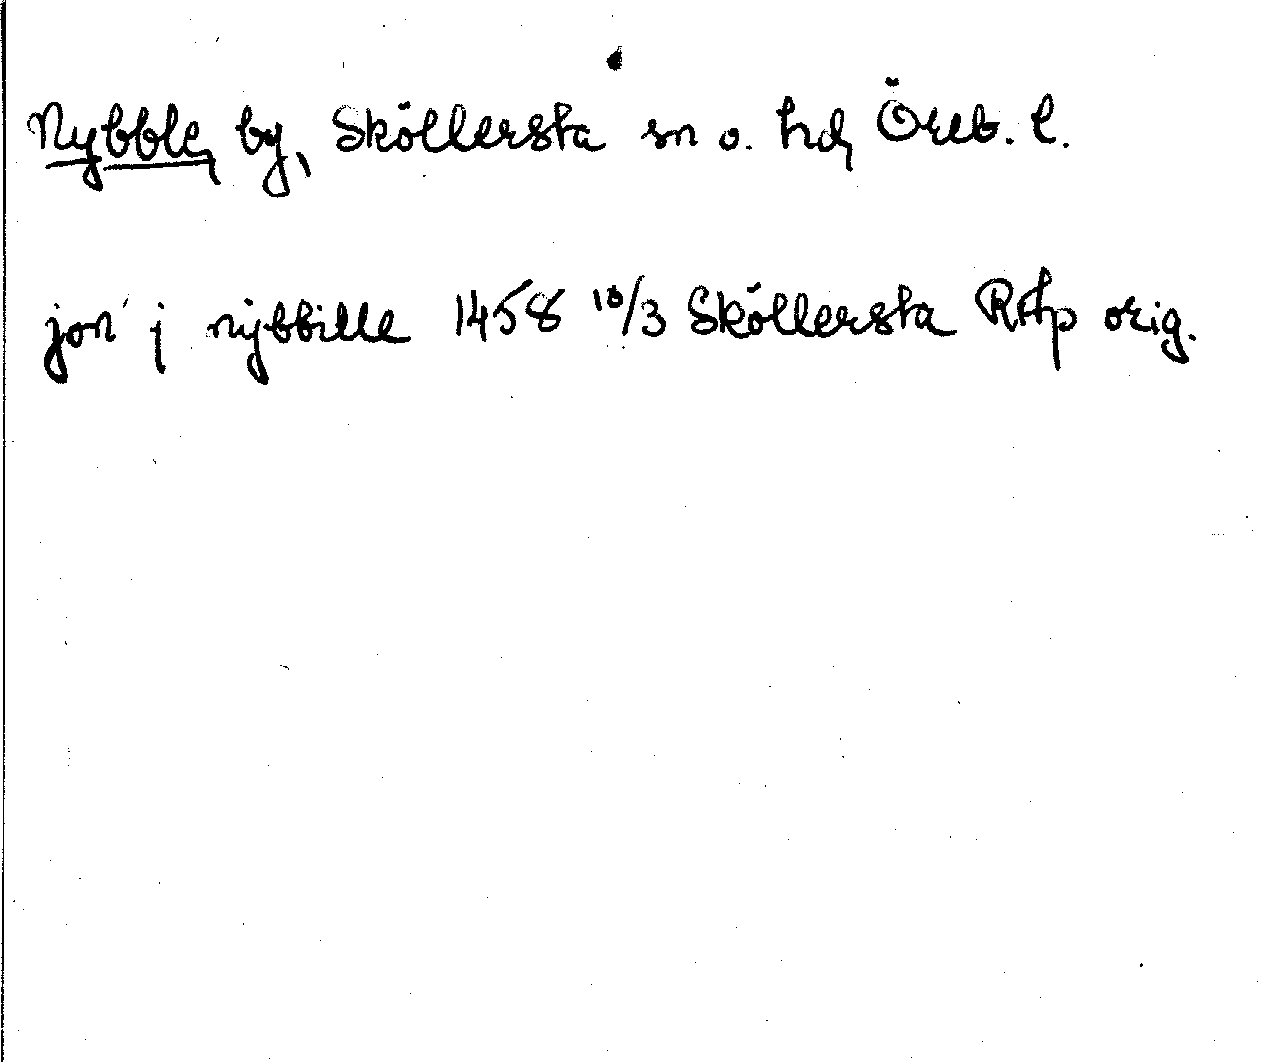 Nybble, by, Sköllersta sn o. hd, Öreb. l.
jon j nÿbbille 1458 10/3 Sköllersta RAp orig.